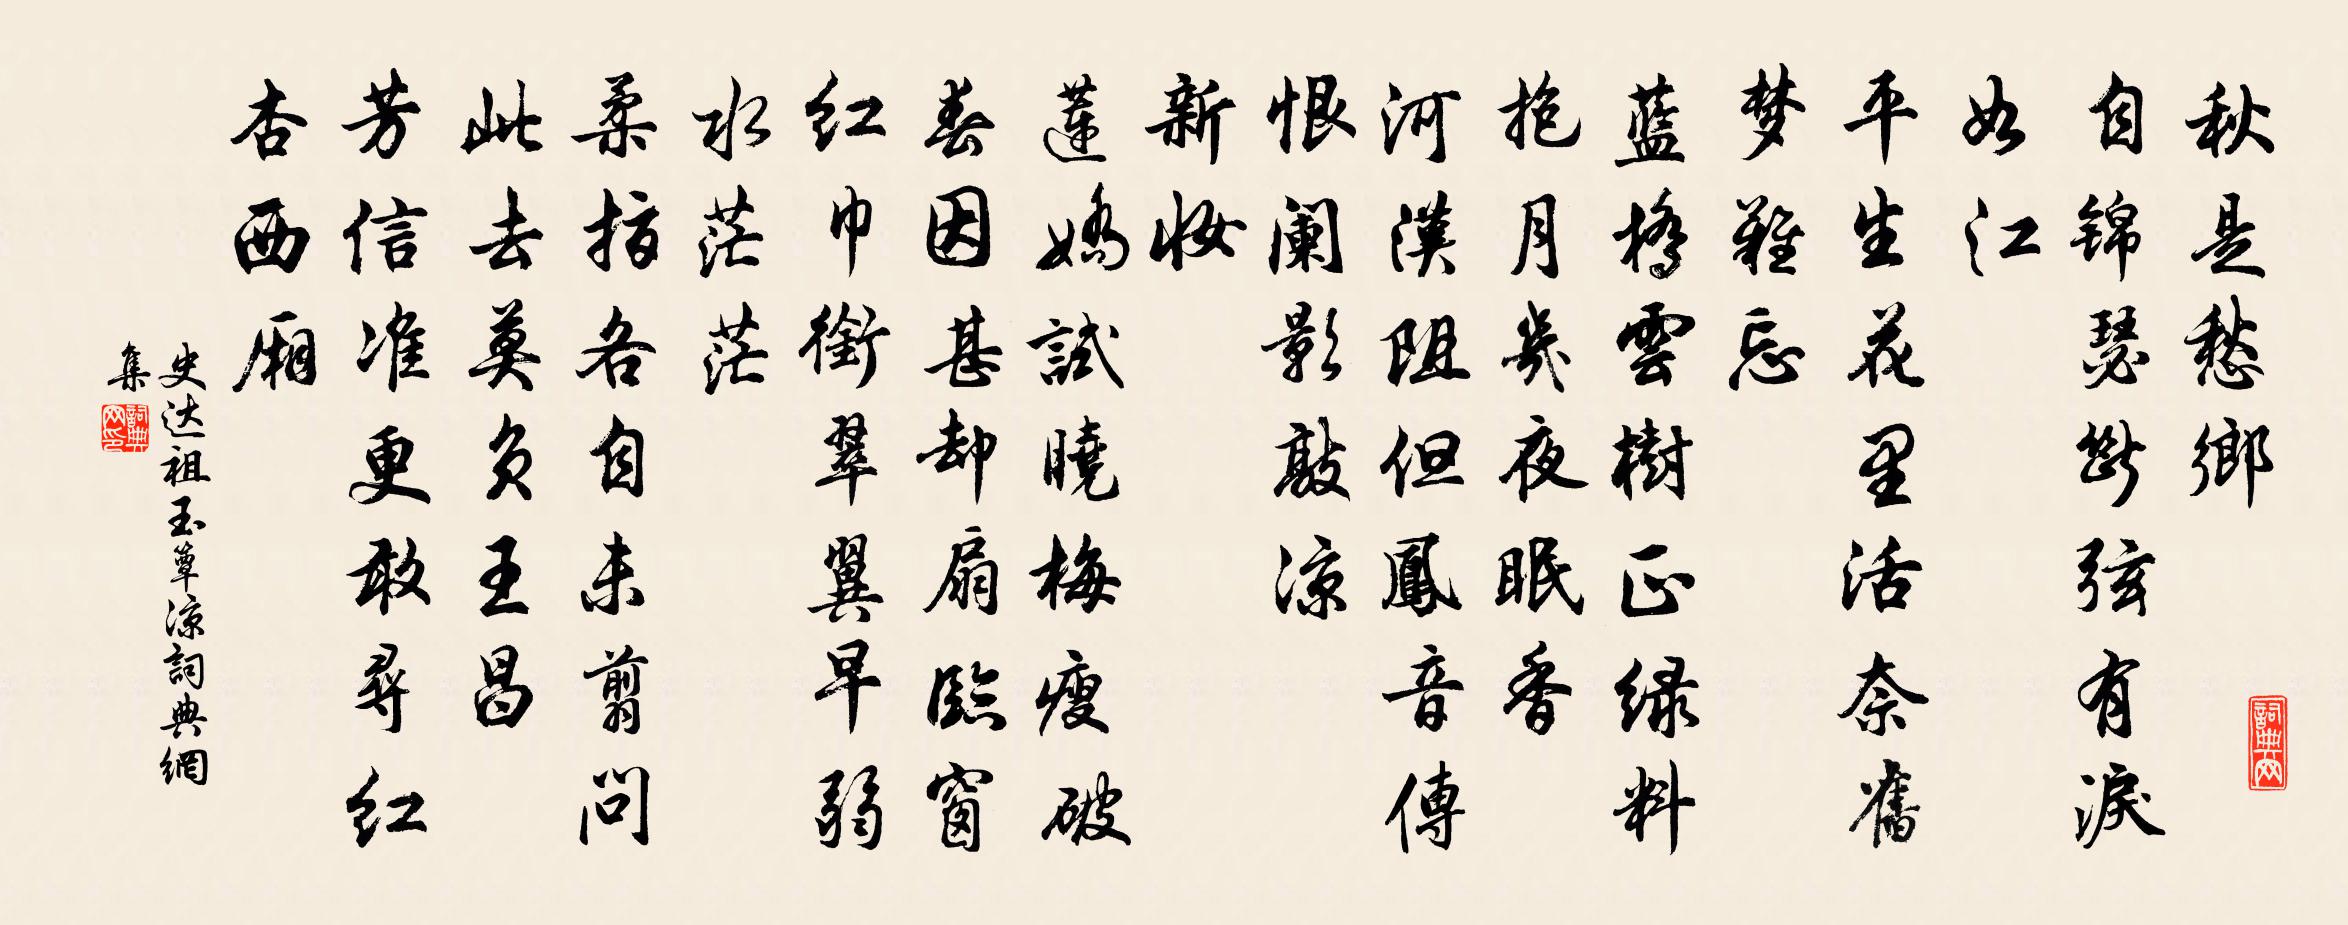 秋是愁鄉
自锦瑟斷弦有淚
如江
平生花里活奈舊
梦難忘
藍橋雲樹正绿料
抱月幾夜眠香
河漢阻但鳳音傳
恨阑影敲凉
新妝
蓮嬌試曉梅瘦破
春因甚却扇臨窗
红巾銜翠翼早弱
水茫茫
柔指各自未剪問
此去莫负王昌
芳信准更敢尋红
杏西厢
史达祖玉簟凉詞典網
集
詞典网印
詞典网